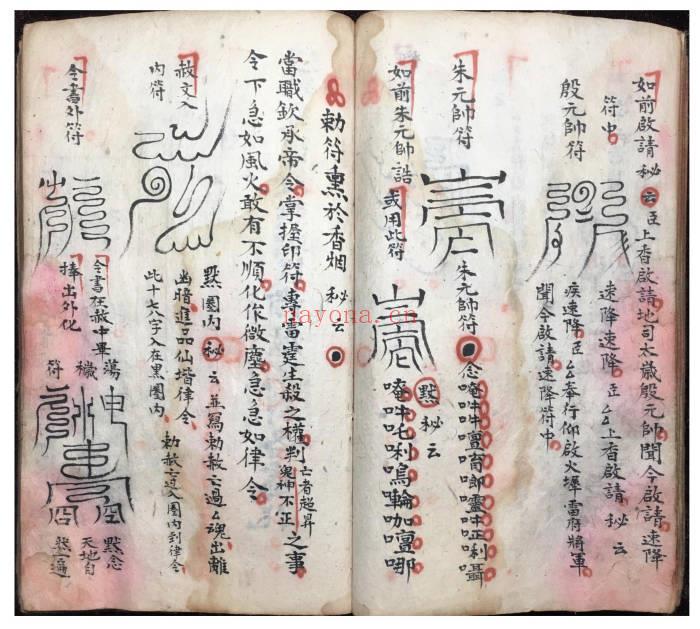 如前啟請 秘 云 臣上香啟請地司太歲殷元帥聞今啟請速降
符中 速降速降 臣厶上香啟請 秘 云
殷元帥符 疾速降臣厶奉行仰啟火犀雷府將軍
聞今啟請速降符中
朱元帥符 朱元帥符 念
如前朱元帥誥 或用此符 黙 秘 云
唵吽吒利嗚輪咖囉哪
勅符熏於香烟 秘 云
當職欽承帝令掌握印符專雷霆生殺之權判亡者超昇鬼神不正之事
令下急如風火敢有不順化作微塵急急如律令
赦文入
內符
黙圏內 秘 云 並寫勅赦云過厶魂出離
幽暗進品仙堦律令 勅赦云入圏內到律令
此十七八字入在黒圏內
令書外符
令書在赦中畢
捧出外化
蕩穢符
黙念
天地自
然一遍
nayona.cn